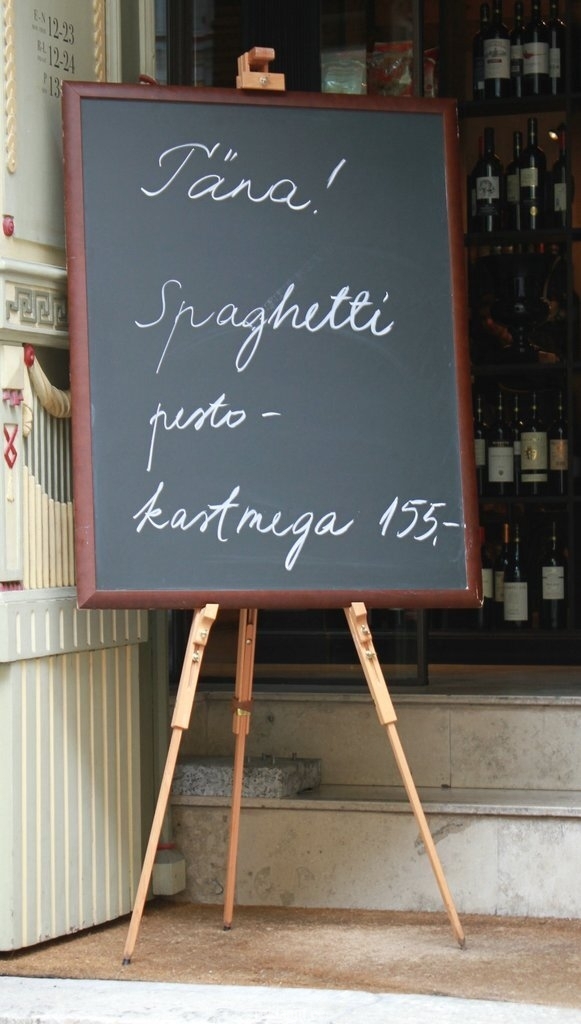 E-N 12-23
R-L 12-24
P 13
Täna!
Spaghetti
pesto-
kastmega 155,-